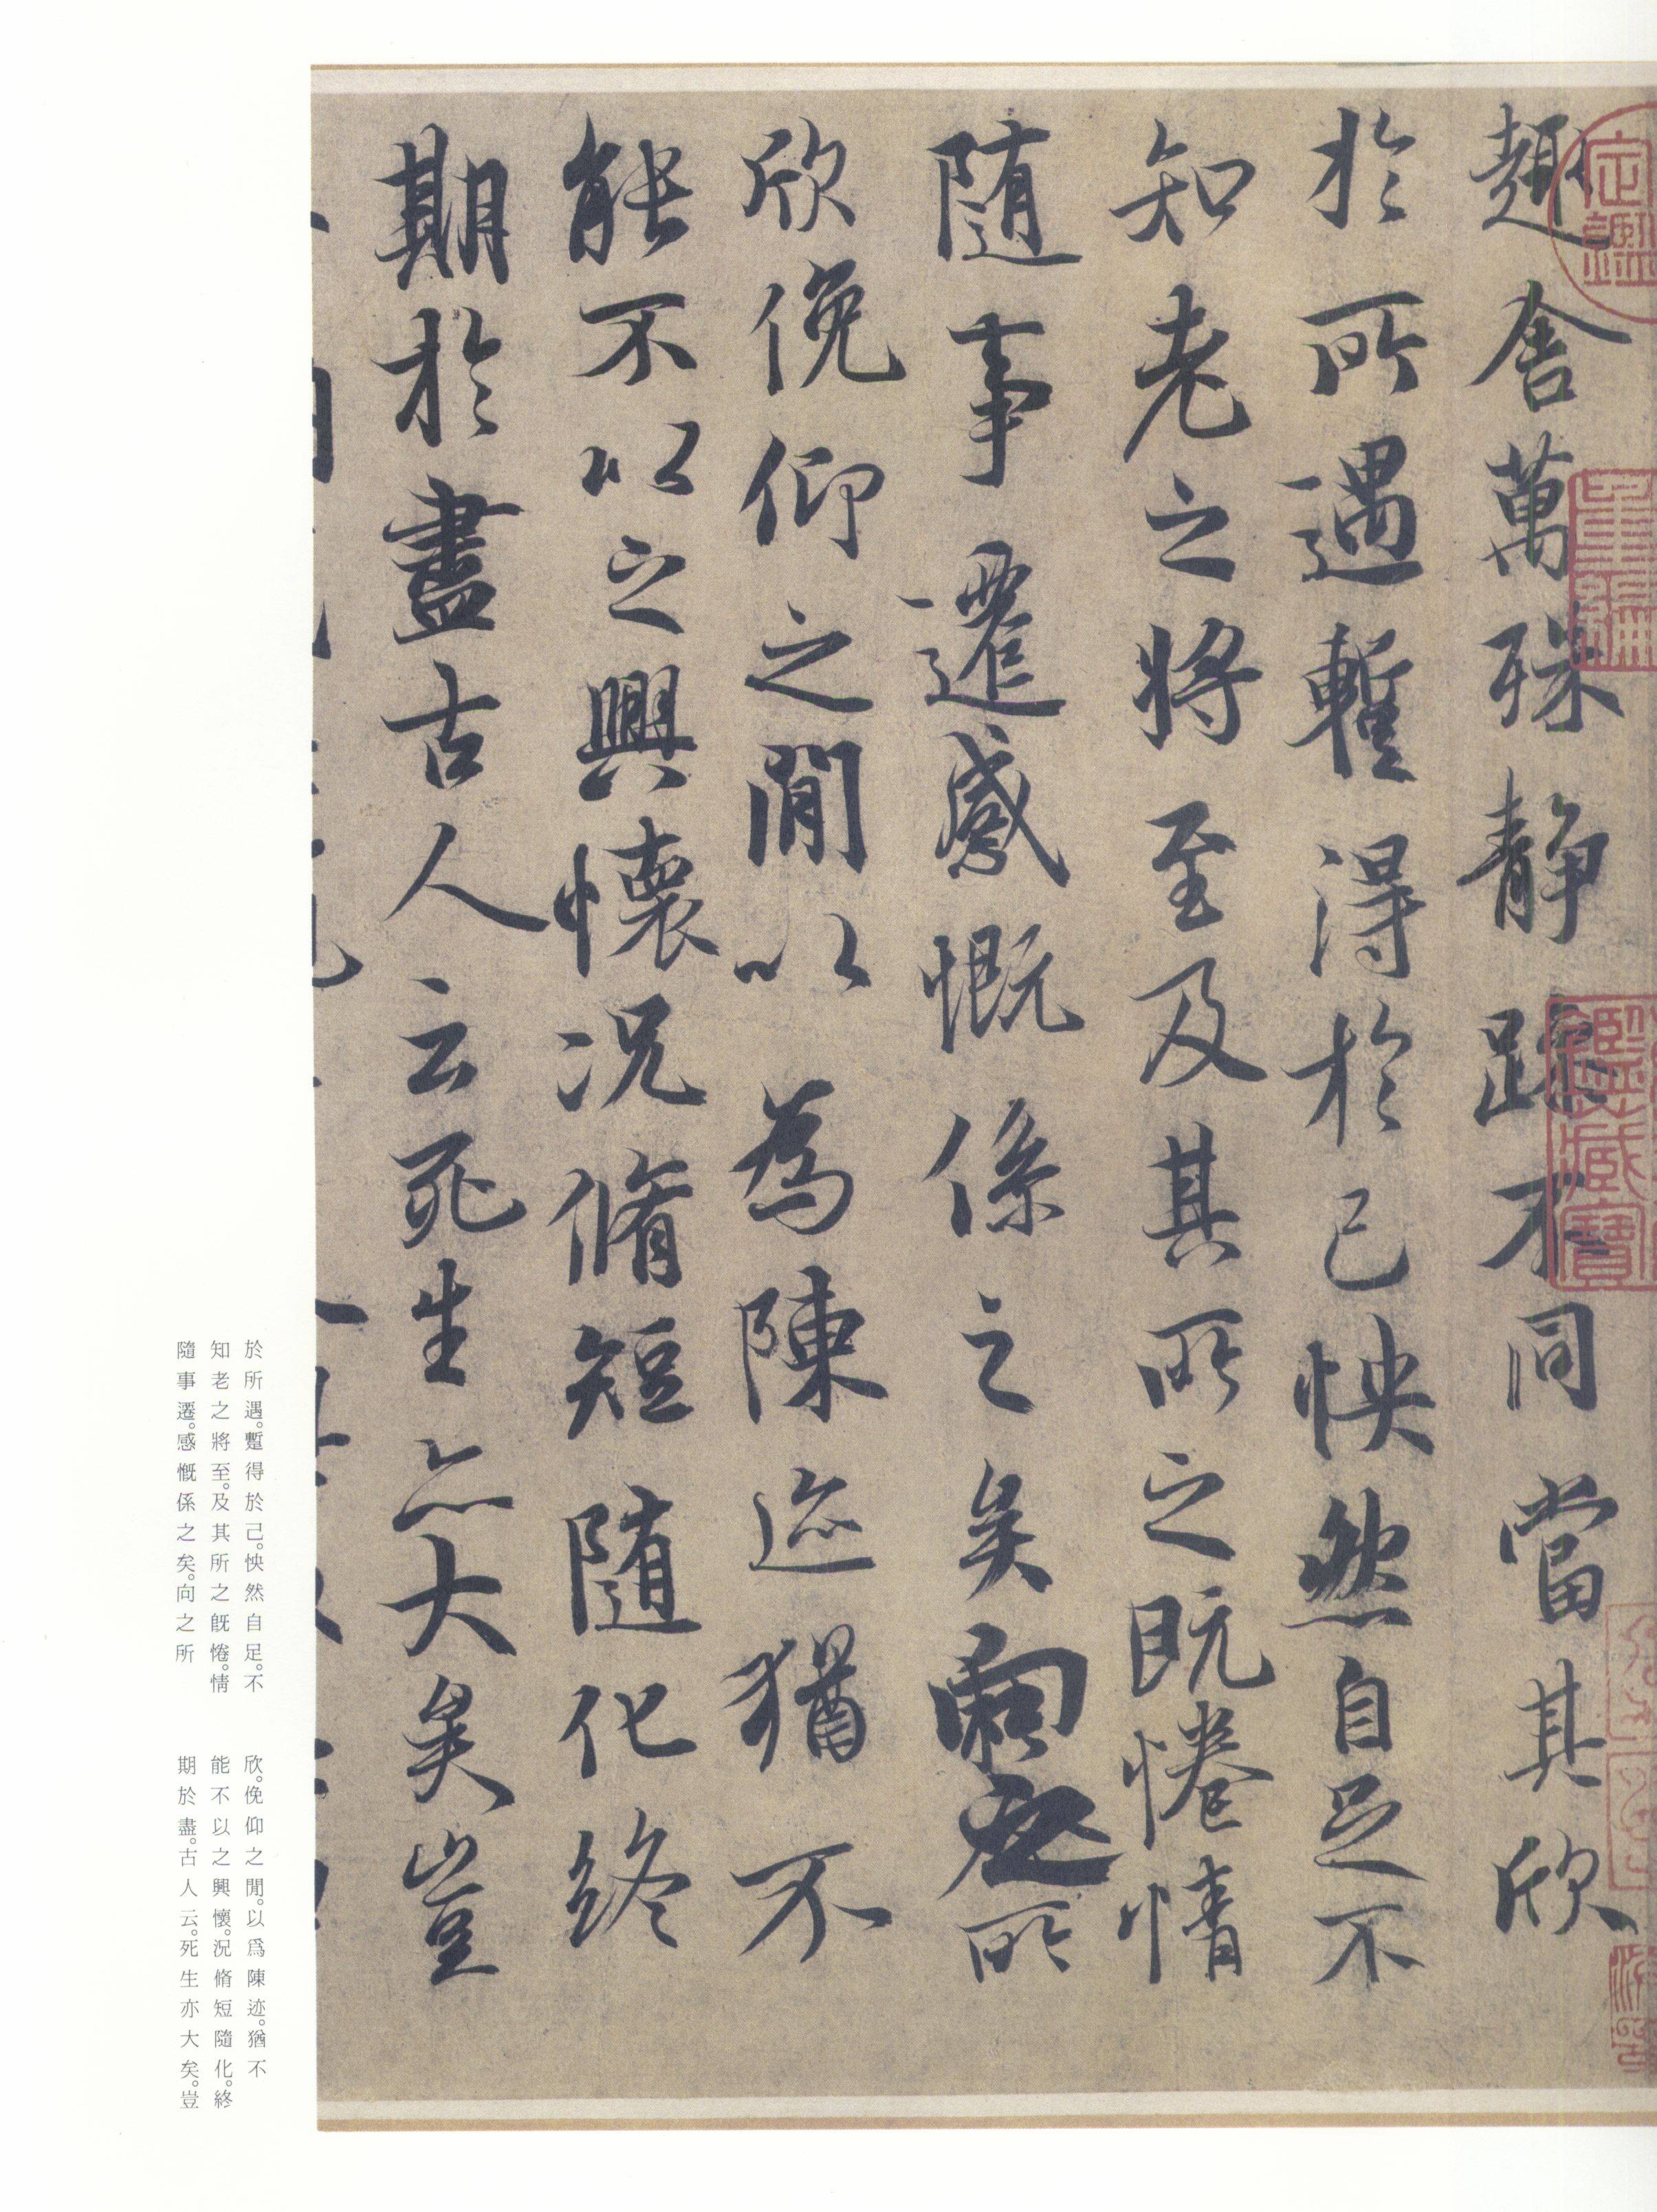 趣舍萬殊静躁不同當其欣
於所遇蹔得於己怏然自足不
知老之將至及其所之既惓情
随事遷感慨係之矣向之所
欣俛仰之閒以為陳迹猶不
能不以之興懷况脩短随化終
期於盡古人云死生亦大矣豈
於所遇。蹔得於己。怏然自足。不
知老之將至。及其所之旣惓。情
隨事遷。感慨係之矣。向之所
欣。俛仰之閒。以爲陳迹。猶不
能不以之興懷。況脩短隨化。終
期於盡。古人云。死生亦大矣。豈